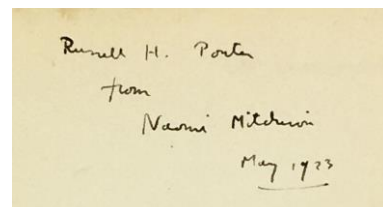 Russell H. Porter
from
Naomi Mitchison
May 1923